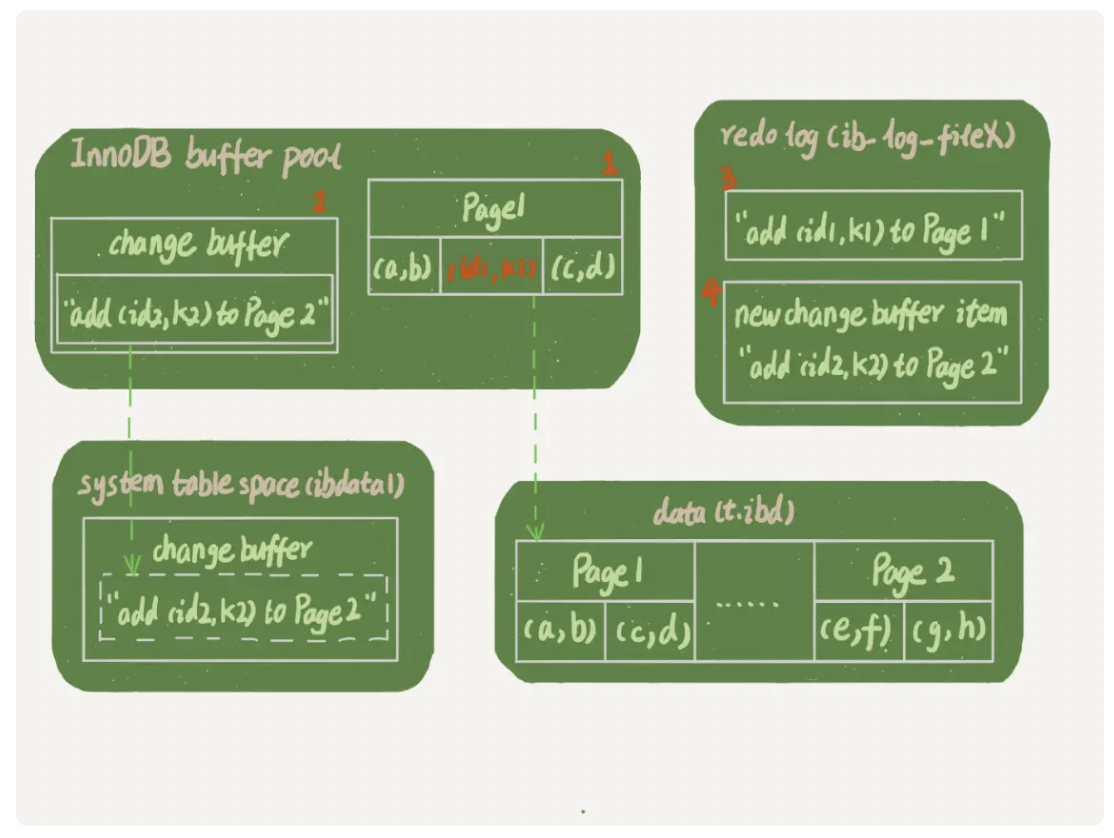 InnoDB buffer pool
2
change buffer
"add (id2,k2) to Page 2"
1
Page1
(a,b) (id1,k1) (c,d)
redo log (ib_log_fileX)
3
"add (id1,k1) to Page 1"
4
new change buffer item
"add (id2,k2) to Page 2"
system table space (ibdata1)
change buffer
"add (id2,k2) to Page 2"
data (t.ibd)
Page1 ...... Page 2
(a,b) (c,d) (e,f) (g,h)